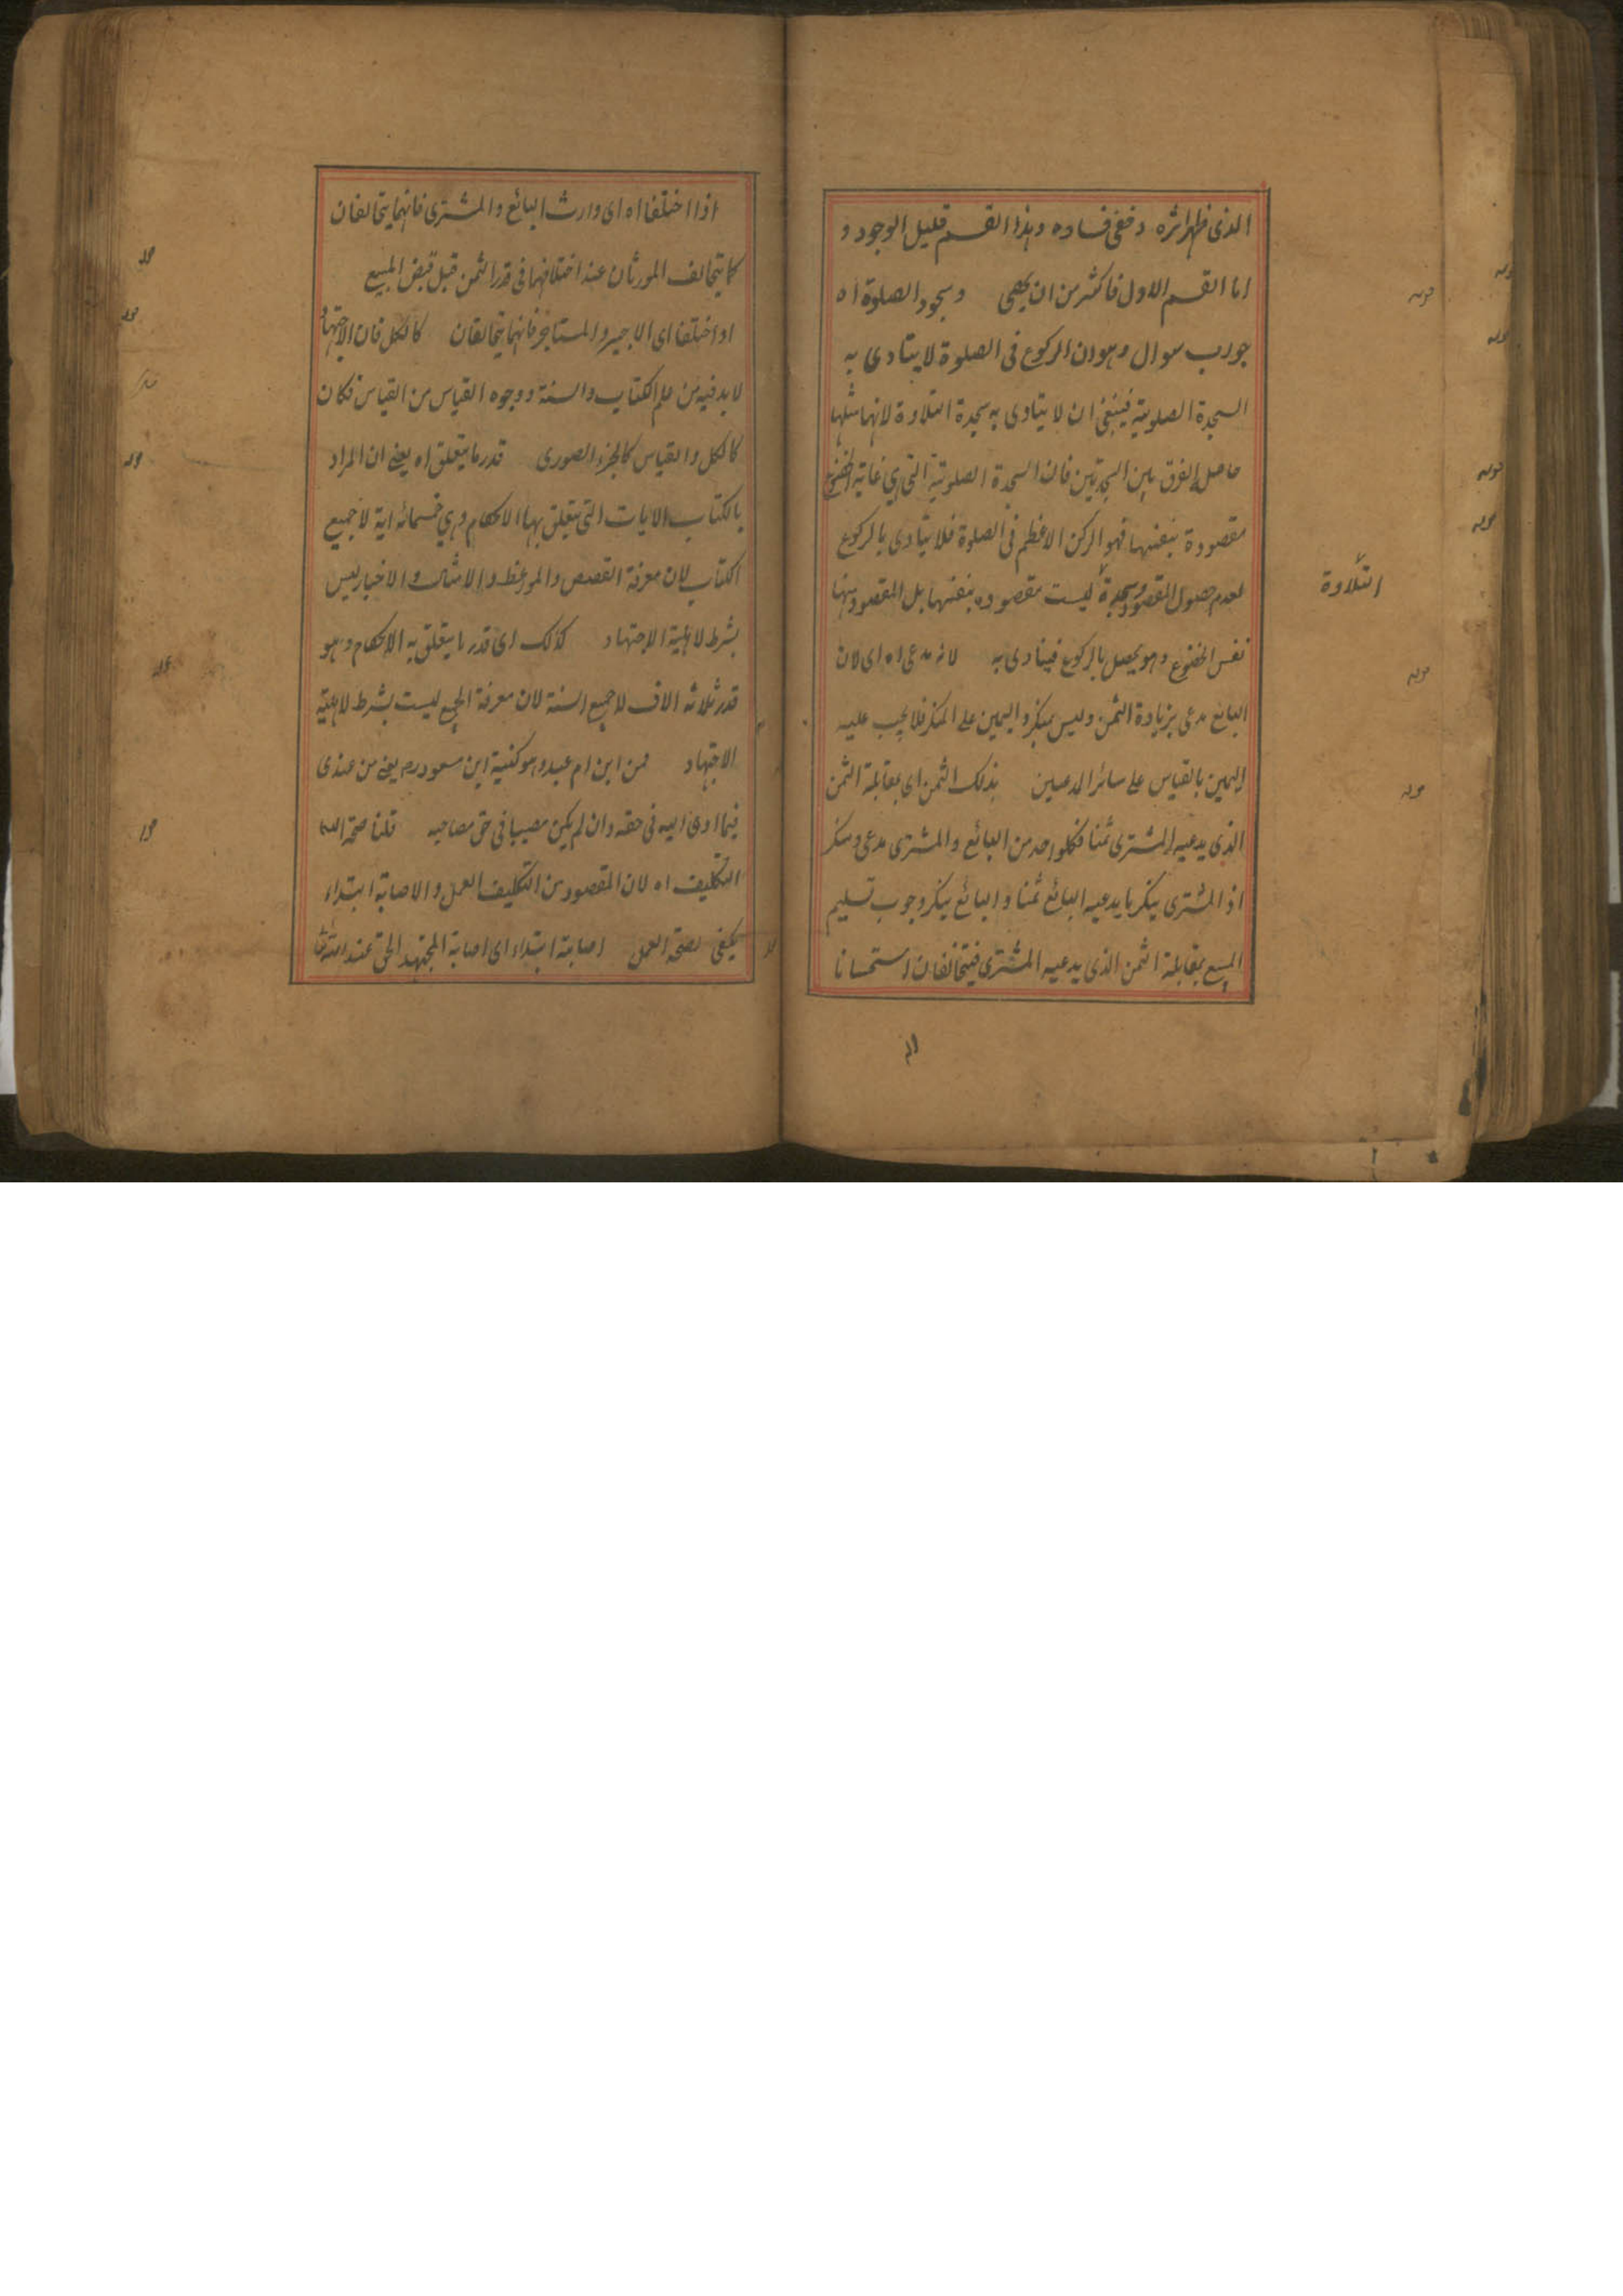 الذى ظهر اثره و خفى فساده وهذا القسم قليل الوجود و
اما القسم الاول فاكثر من ان يحصى وسجود الصلوة اه
جواب سوال وهو ان الركوع فى الصلوة لا يتادى به
السجدة الصلوتية فينبغى ان لا يتادى به سجدة التلاوة لانها مثلها
حاصل الفرق بين السجدتين فان السجدة الصلوتية التى هى غاية الخضوع
مقصودة بنفسها فهو الركن الاعظم فى الصلوة فلا يتادى بالركوع
لعدم حصول المقصود وسجدة ليست مقصوده بنفسها بل المقصود منها
التلاوة
نفس الخضوع وهو يحصل بالركوع فيتادى به لانه مدعى اه اى لان
البائع مدعى بزيادة الثمن وليس بمنكر واليمين على المنكر فلا يجب عليه
اليمين بالقياس على سائر المدعيين بذلك الثمن اى بمقابلة الثمن
الذى يدعيه المشترى ثمنا فكلواحد من البائع والمشترى مدعى ومنكر
اذ المشترى ينكر ما يدعيه البائع ثمنا والبائع ينكر وجوب تسليم
المبيع بمقابلة الثمن الذى يدعيه المشترى فيتخالفان استحسانا
اذا اختلفا اه اى وارث البائع والمشترى فانهما يتحالفان
كما يتحالف المورثان عند اختلافهما فى قدر الثمن قبل قبض المبيع
او اختلفا اى الاجير والمستاجر فانهما يتحالفان كالكل فان الاجتهاد
لا بد فيه من علم الكتاب والسنة ووجوه القياس من القياس فكان
كالكل والقياس كالجزء الصورى قدر ما يتعلق اه يعنى ان المراد
بالكتاب الايات التى يتعلق بها الاحكام وهي خمسمائة اية لا جميع
الكتاب لان معرفة القصص والمواعظ والامثال والاخبار ليس
بشرط لاهلية الاجتهاد كذلك اى قدر ما يتعلق به الاحكام وهو
قدر ثلاثه الاف لا جميع السنة لان معرفة الجميع ليست بشرط لاهلية
الاجتهاد فمن ابن ام عبد وهو كنية ابن مسعود رم يعنى من عندى
فيما ادى اليه فى حقه وان لم يكن مصيبا فى حق صاحبه قلنا صحة
التكليف اه لان المقصود من التكليف العمل والاصابة ابتداء
يكفى لصحة العمل اصابة ابتداء اى اصابة المجتهد الحق عند الله تعا